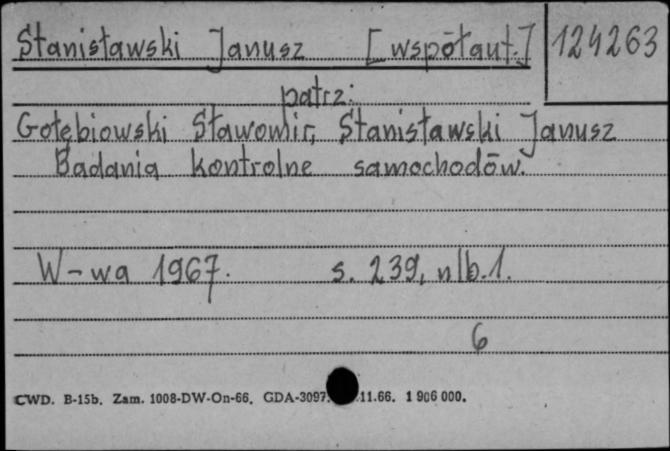 Stanisławski Janusz [współaut.] 124263
patrz:
Gołębiowski Sławomir, Stanisławski Janusz
Badania kontrolne samochodów.
W-wa 1967. s. 239, nlb. 1.
6
CWD. B-15b. Zam. 1008-DW-On-66. GDA-3097. 11.66. 1 906 000.